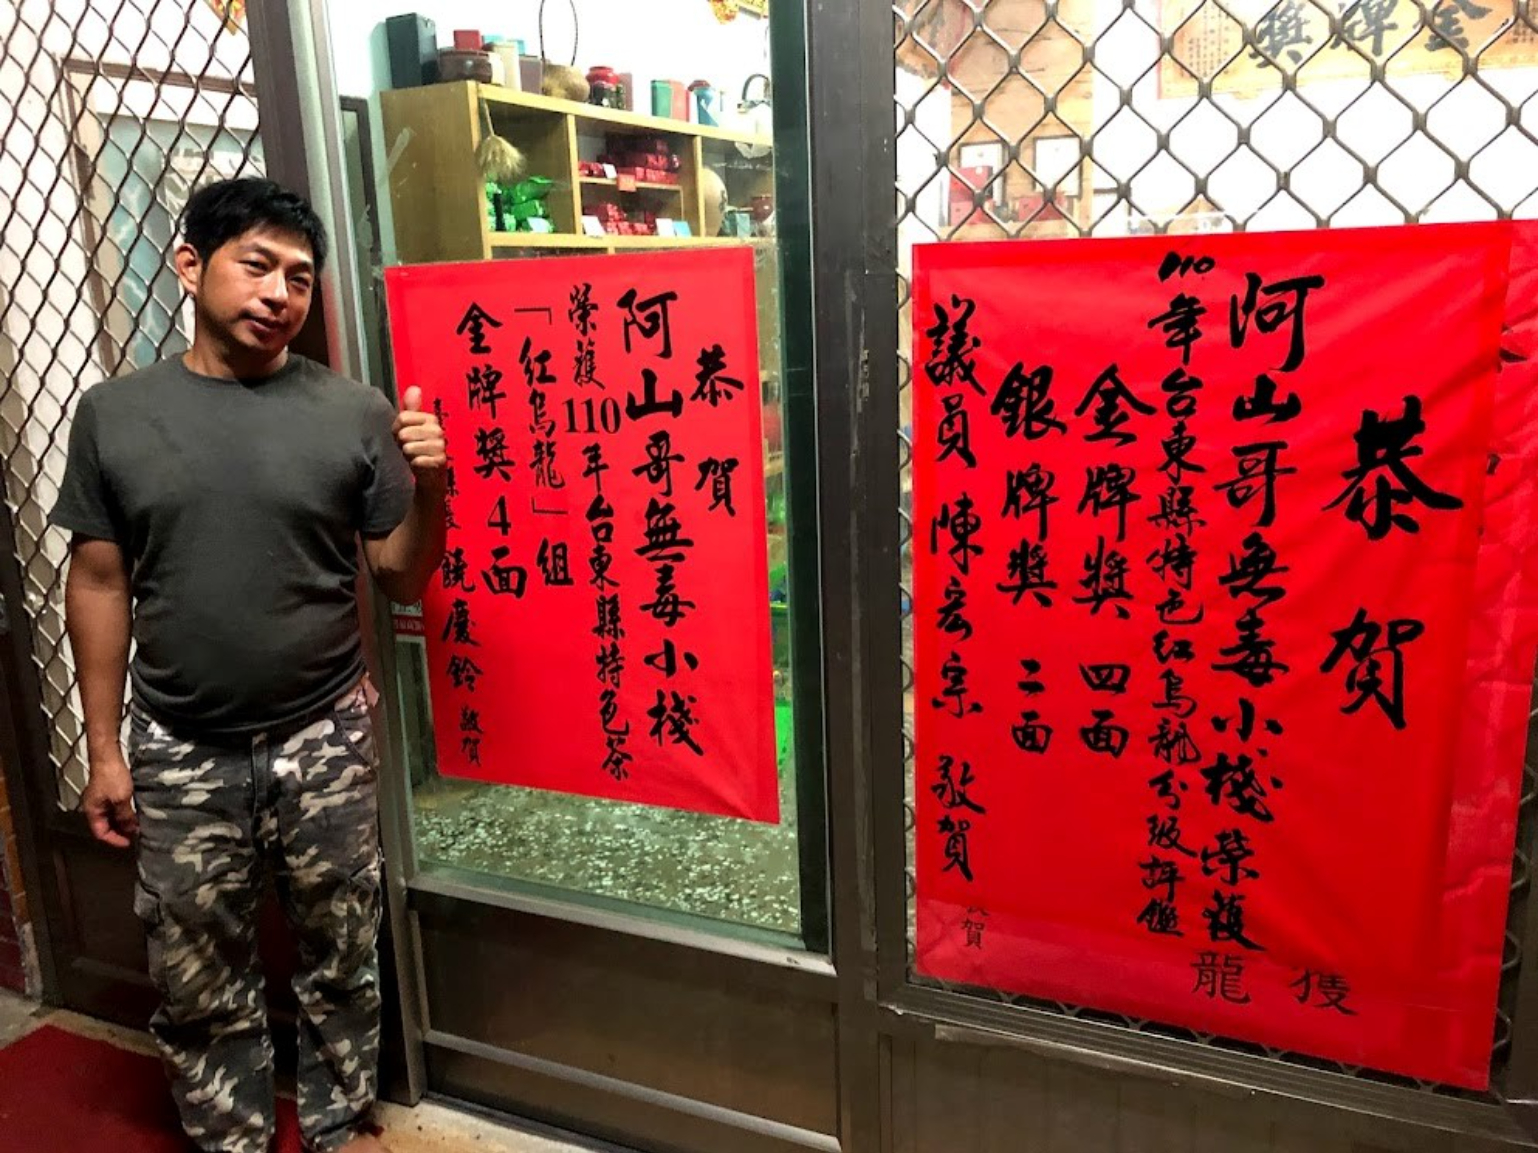 金牌獎
恭賀
阿山哥無毒小棧
榮獲110年台東縣特色茶
「紅烏龍」組
金牌獎4面
縣長 饒慶鈴 敬賀
恭賀
阿山哥無毒小棧榮獲
110年台東縣特色紅烏龍分級評鑑
金牌獎 四面
銀牌獎 二面
議員 陳宏宗 敬賀
獲
龍
賀